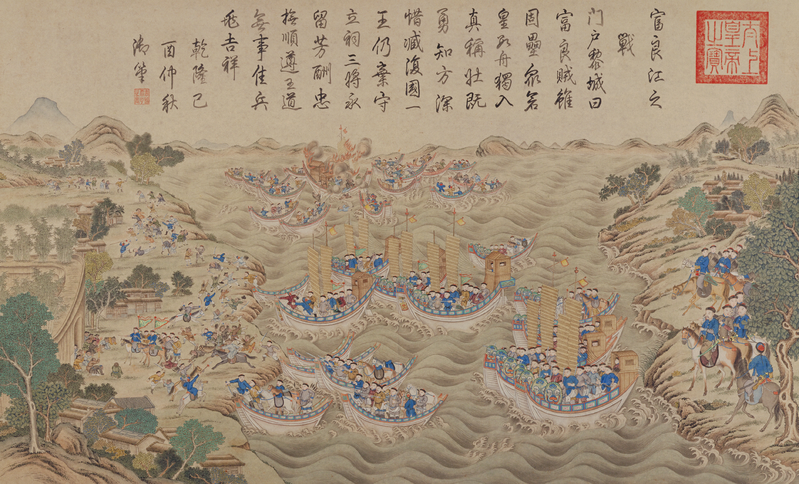 太上皇帝之寶
富良江之
戰
門户黎城曰
富良賊雖
固壘衆若
皇奪舟獨入
真稱壯既
勇知方深
惜臧復國一
王仍棄守
立祠三將永
留芳酬忠
撫順遵王道
無事佳兵
兆吉祥
乾隆己
酉仲秋
御筆